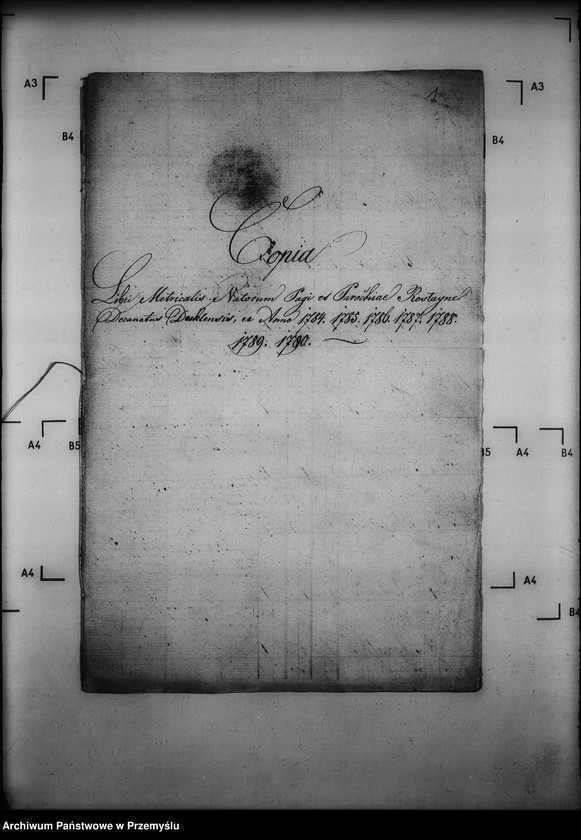 1
A3
A3
B4
B4
Copia
Libri Metricalis Natorum Pagi et Parochiae Rostayne
Decanatus Duklensis, ex Anno 1784. 1785. 1786. 1787. 1788.
1789. 1790.
A4
B5
B5
A4
B4
A4
A4
B4
Archiwum Państwowe w Przemyślu